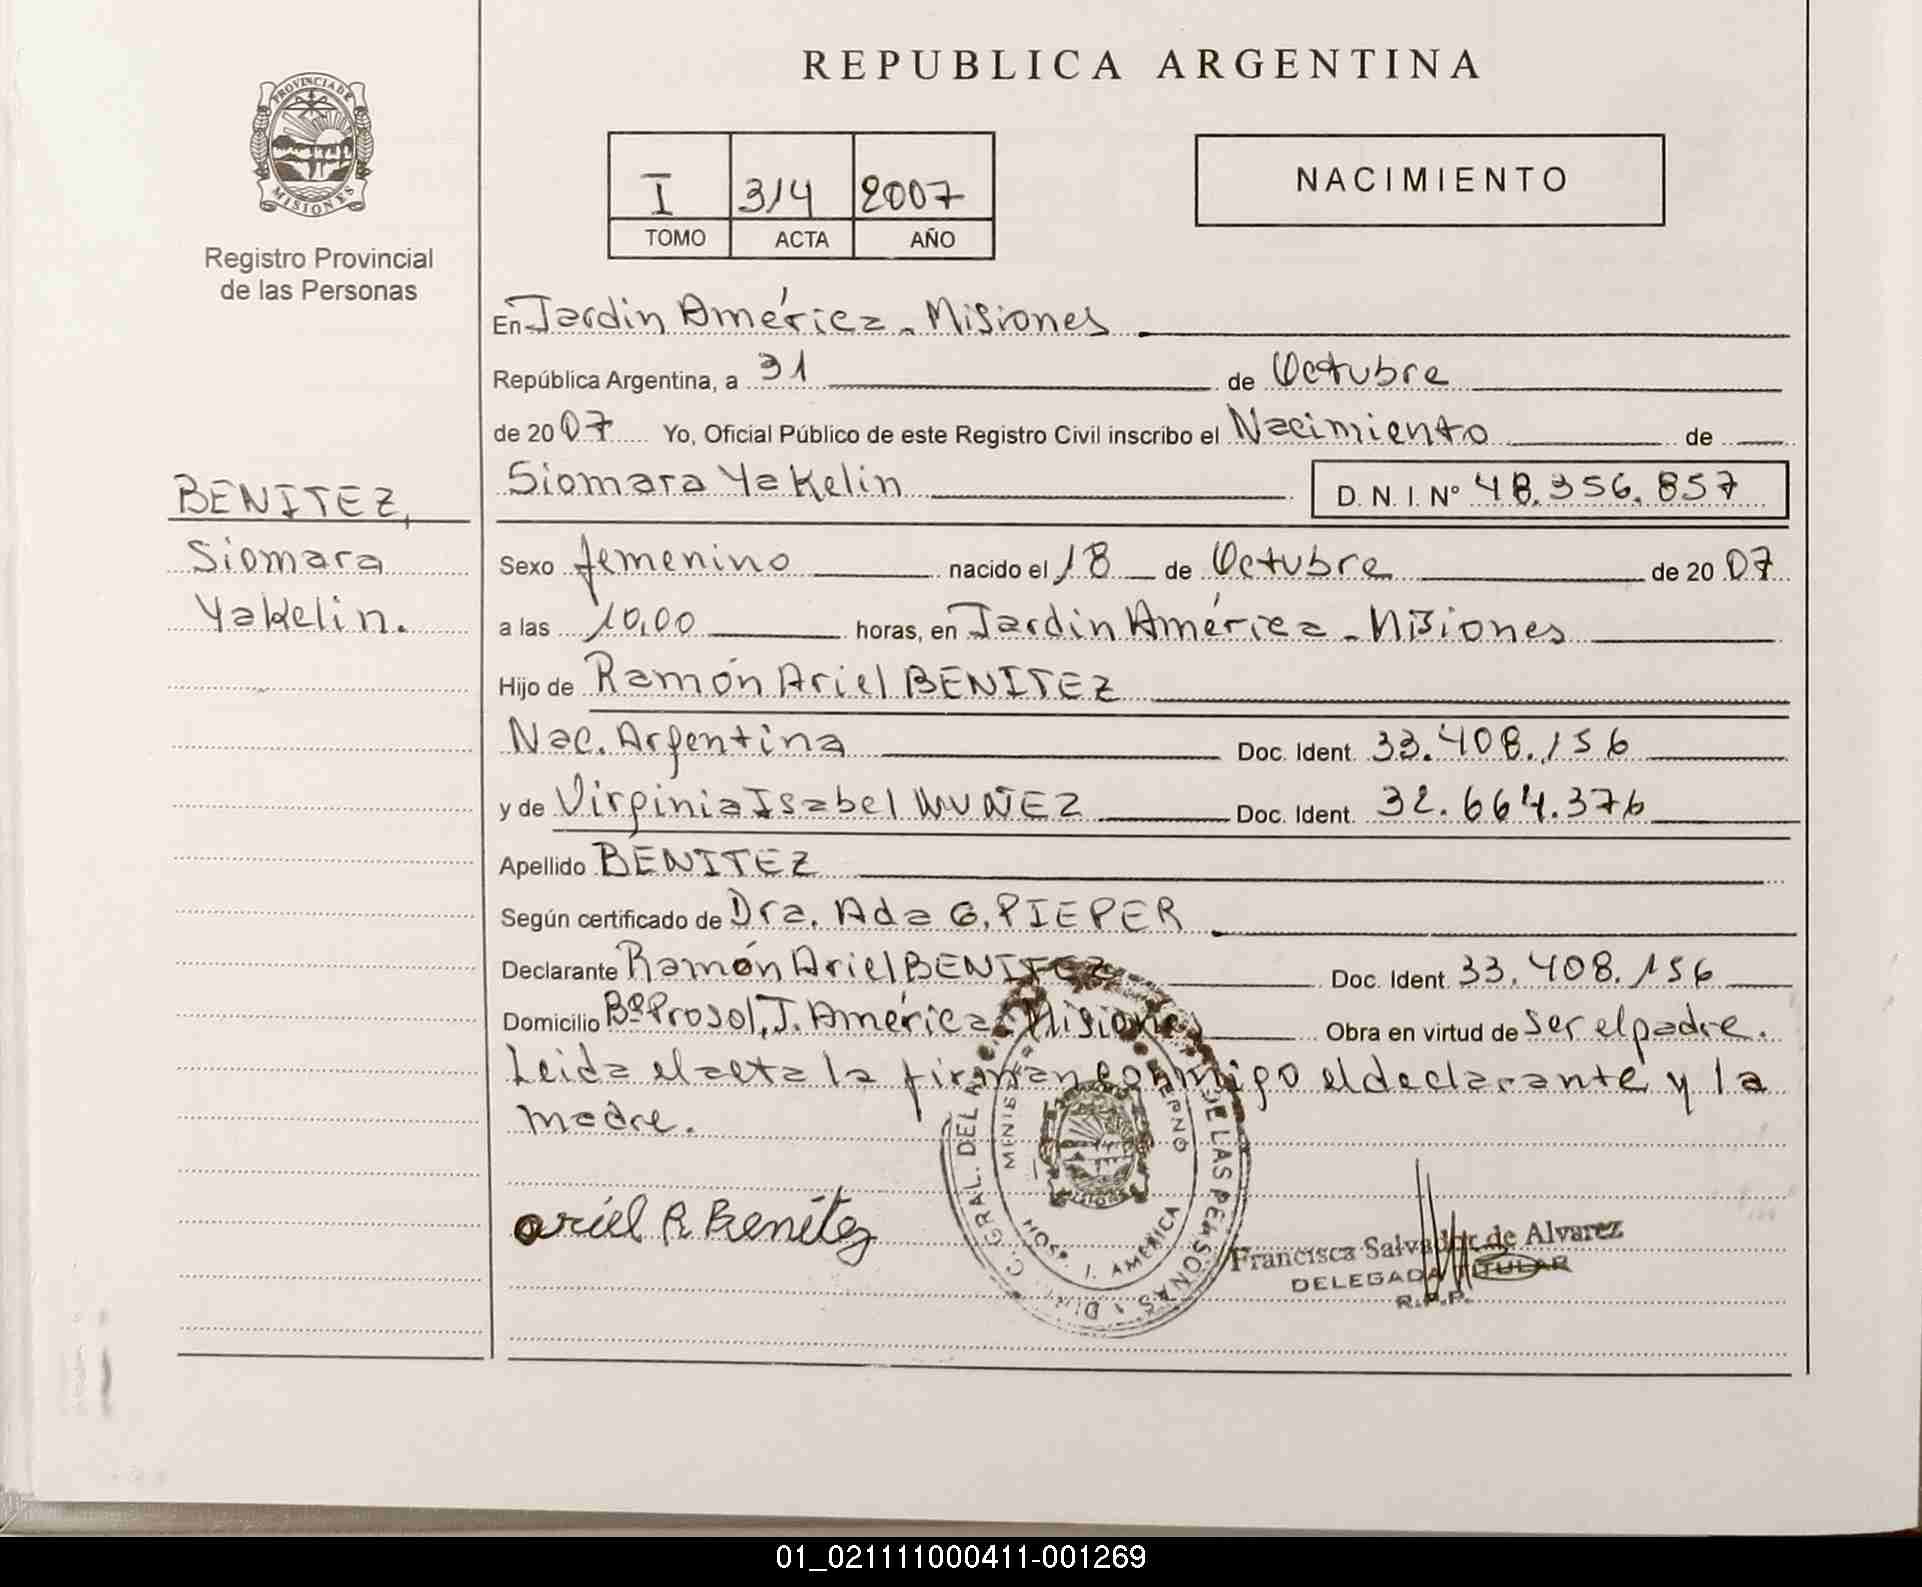 REPUBLICA ARGENTINA
PROVINCIA DE
MISIONES
Registro Provincial
de las Personas
I 314 2007
TOMO ACTA AÑO
NACIMIENTO
En Jardin América - Misiones
República Argentina, a 31 de Octubre
de 2007 Yo, Oficial Público de este Registro Civil inscribo el Nacimiento de
Siomara Yakelin D. N. I. N° 48.356.857
BENITEZ,
Siomara
Yakelin.
Sexo femenino nacido el 18 de Octubre de 2007
a las 10,00 horas, en Jardin América - Misiones
Hijo de Ramón Ariel BENITEZ
Nac. Argentina Doc. Ident. 33.408.156
y de Virginia Isabel NUÑEZ Doc. Ident. 32.664.376
Apellido BENITEZ
Según certificado de Dra. Ada G. PIEPER
Declarante Ramón Ariel BENITEZ Doc. Ident. 33.408.156
Domicilio Bº Prosol, J. América - Misiones Obra en virtud de ser el padre.
Leida el acta la firman conmigo el declarante y la
madre.
ariel R Benitez
J. AMERICA
DE LAS PERSONAS
Francisca Salvador de Alvarez
DELEGADA TITULAR
R.P.P.
01_021111000411-001269